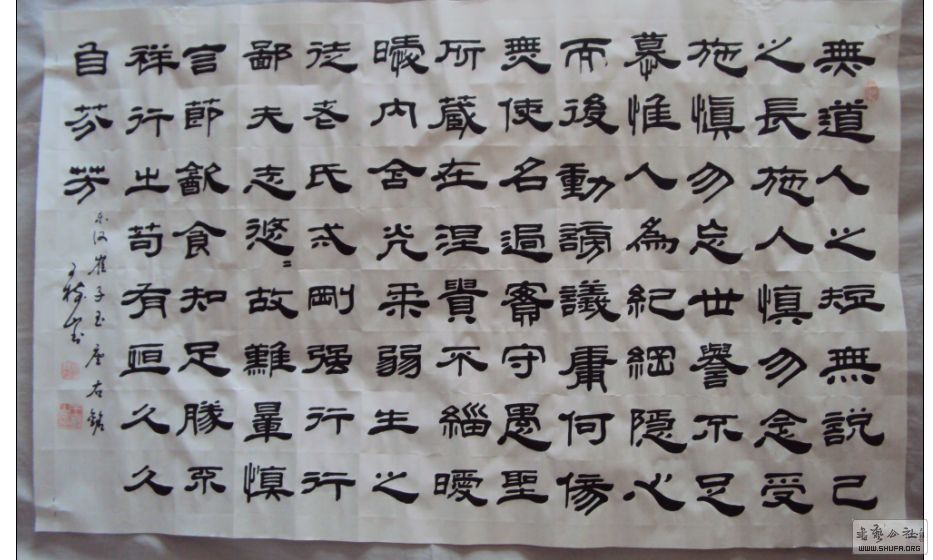 無道人之短無說己
之長施人慎勿念受
施慎勿忘世譽不足
慕惟人為紀綱隱心
而後動謗議庸何傷
無使名過實守愚聖
所藏在涅貴不緇曖
曖內含光柔弱生之
徒老氏戒剛强行行
鄙夫志悠〻故難量慎
言節飲食知足勝不
祥行之苟有恒久久
自芬芳
东汉崔子玉座右銘
WWW.SHUFA.ORG